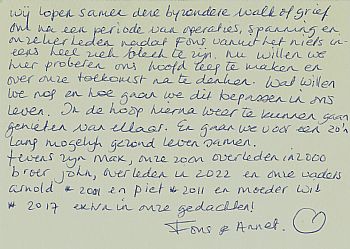 wij lopen samen deze byzondere walk of grief
om na een periode van operaties, spanning en
onzekerheden nadat Fons vanuit het niets in-
eens heel ziek bleek te zijn. Nu willen we
hier proberen ons hoofd leeg te maken en
over onze toekomst na te denken. Wat willen
we nog en hoe gaan we dit inpassen in ons
leven. In de hoop hierna weer te kunnen gaan
genieten van elkaar. En gaan we voor een zo'n
lang mogelijk gezond leven samen.
Tevens zijn Max, onze zoon overleden in 2000
broer John, overleden in 2022 en onze vaders
Arnold * 2001 en Piet * 2011 en moeder Wil
* 2017 extra in onze gedachten!
Fons & Annet.